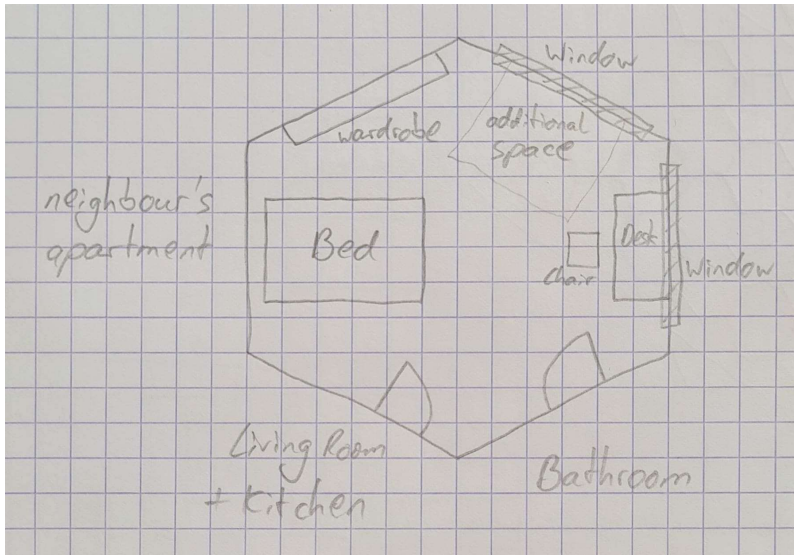 Window
wardrobe
additional
space
neighbour's
apartment
Bed
Desk
Chair
Window
Living Room
+ Kitchen
Bathroom